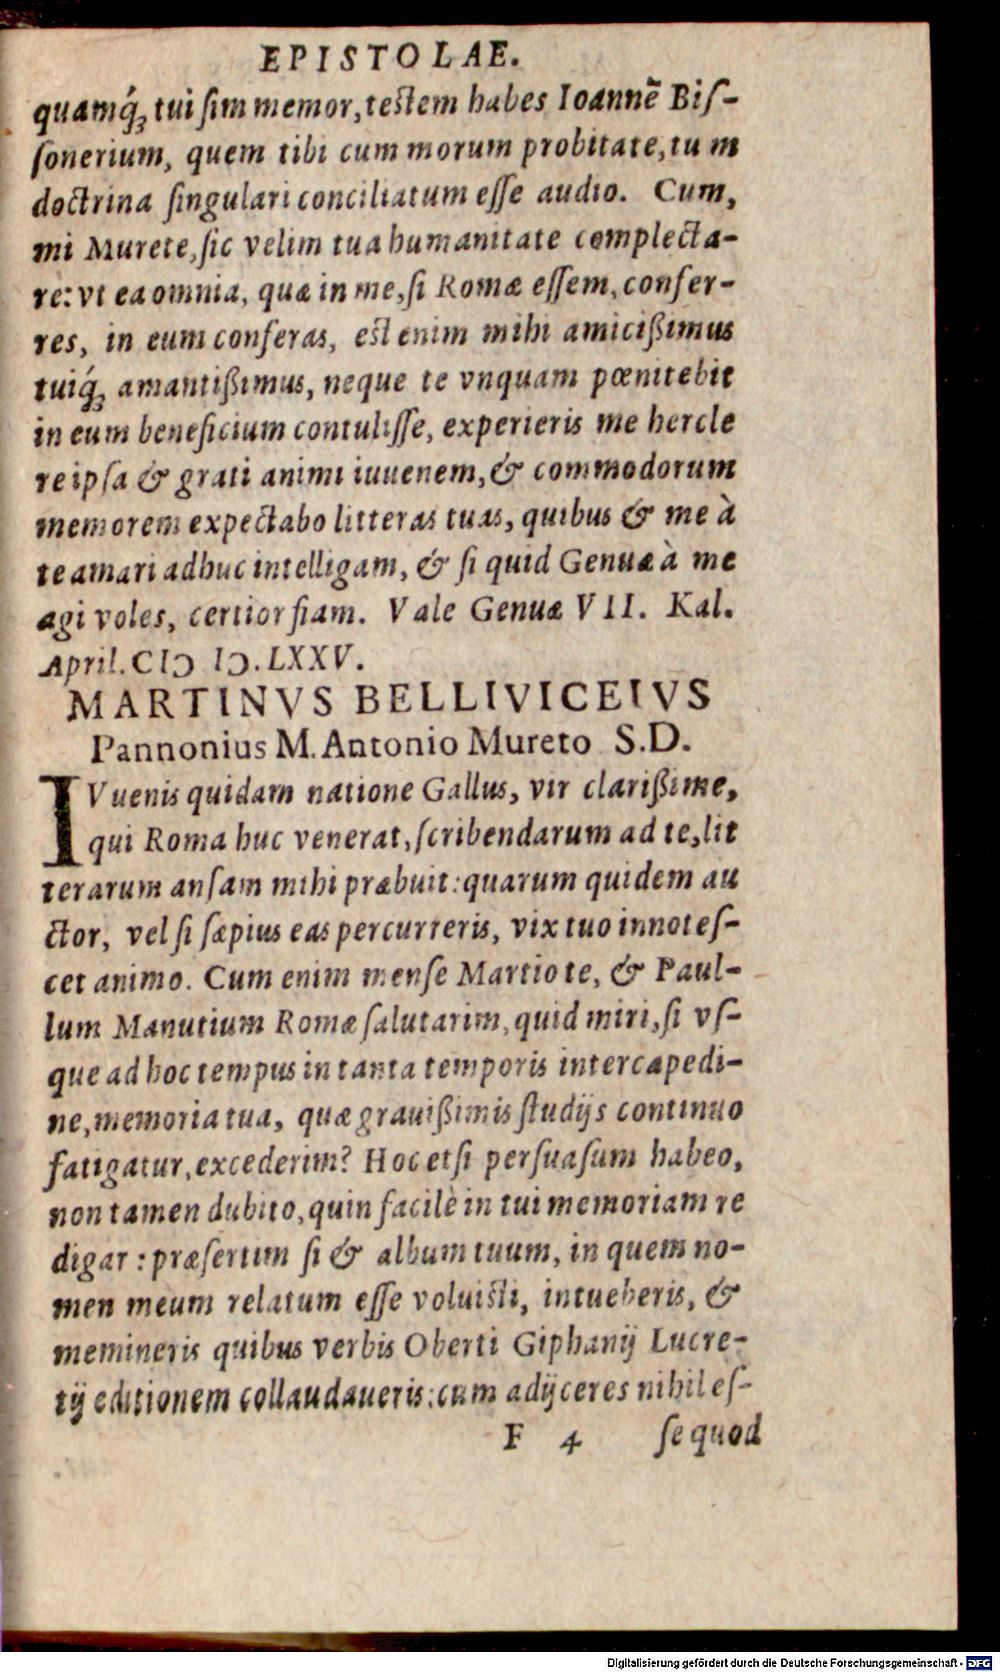 EPISTOLAE.
quamq́ꝫ tui ſim memor, teſtem habes Ioannẽ Biſ-
ſonerium, quem tibi cum morum probitate, tum
doctrina ſingulari conciliatum eſſe audio. Cum,
mi Murete, ſic velim tua humanitate complecta-
re: vt ea omnia, quæ in me, ſi Romæ eſſem, confer-
res, in eum conferas, eſt enim mihi amicißimus
tuiq́ꝫ amantißimus, neque te vnquam pœnitebit
in eum beneficium contuliſſe, experieris me hercle
re ipſa & grati animi iuuenem, & commodorum
memorem expectabo litteras tuas, quibus & me à
te amari adhuc intelligam, & ſi quid Genuæ à me
agi voles, certior fiam. Vale Genuæ VII. Kal.
April. CIↃ IↃ. LXXV.
MARTINVS BELLIVICEIVS
Pannonius M. Antonio Mureto S.D.
IVuenis quidam natione Gallus, vir clarißime,
qui Roma huc venerat, ſcribendarum ad te, lit
terarum anſam mihi præbuit: quarum quidem au
ctor, vel ſi ſæpius eas percurreris, vix tuo innoteſ-
cet animo. Cum enim menſe Martio te, & Paul-
lum Manutium Romæ ſalutarim, quid miri, ſi vſ-
que ad hoc tempus in tanta temporis intercapedi-
ne, memoria tua, quæ grauißimis ſtudijs continuo
fatigatur, excederim? Hoc etſi perſuaſum habeo,
non tamen dubito, quin facilè in tui memoriam re
digar: præſertim ſi & album tuum, in quem no-
men meum relatum eſſe voluiſti, intueberis, &
memineris quibus verbis Oberti Giphanij Lucre-
tij editionem collaudaueris: cum adijceres nihil eſ-
F 4 ſe quod
Digitalisierung gefördert durch die Deutsche Forschungsgemeinschaft - DFG